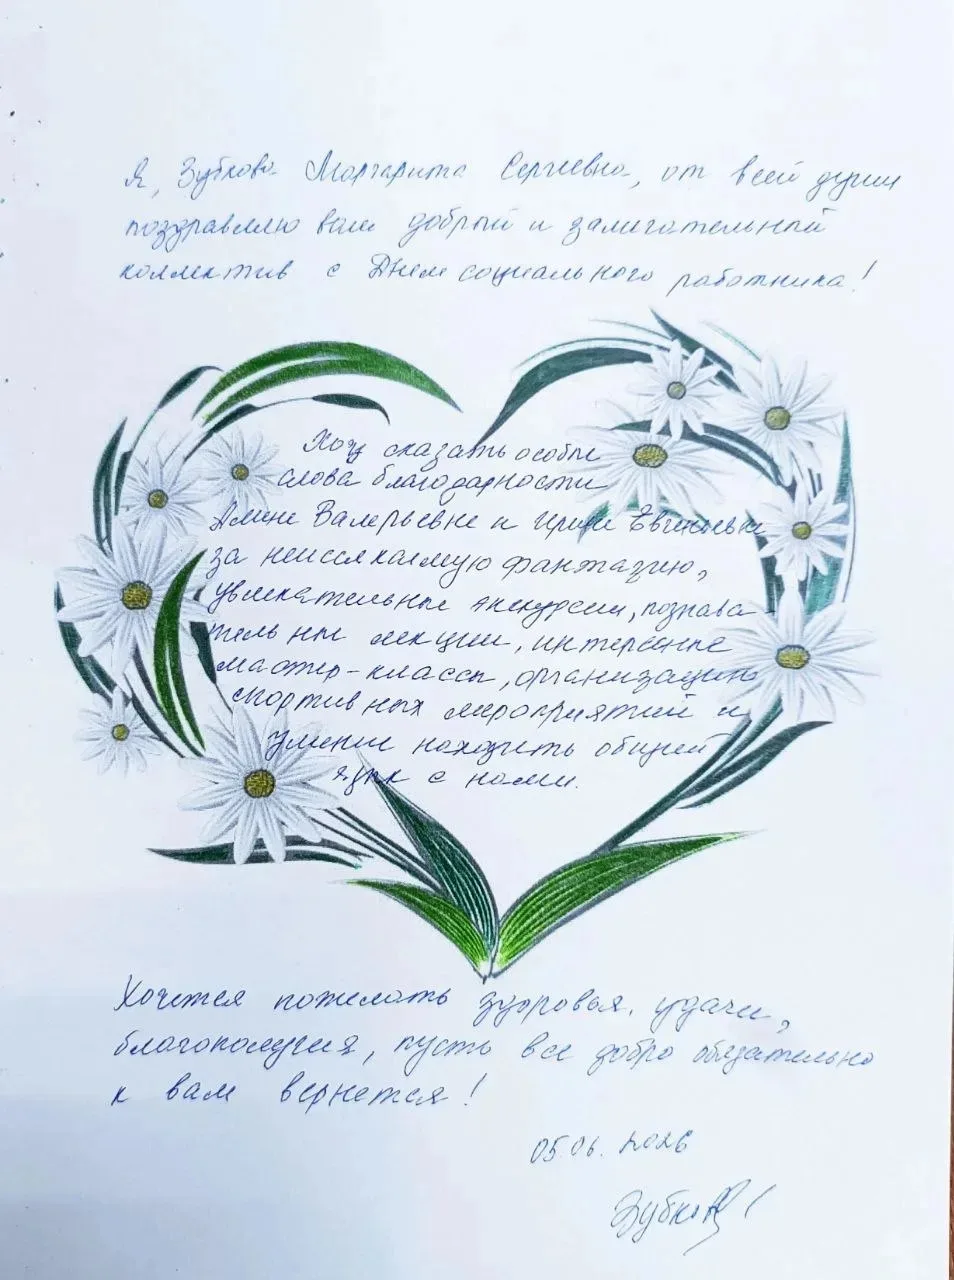 Я, Зубкова Маргарита Сергеевна, от всей души
поздравляю ваш добрый и замечательный
коллектив с Днем социального работника!
Хочу сказать особые
слова благодарности
Алине Валерьевне и Ирине Евгеньевне
за неиссякаемую фантазию,
увлекательные экскурсии, познава-
тельные лекции, интересные
мастер-классы, организацию
спортивных мероприятий и
умение находить общий
язык с нами.
Хочется пожелать здоровья, удачи,
благополучия, пусть все добро обязательно
к вам вернется!
05.06.2026